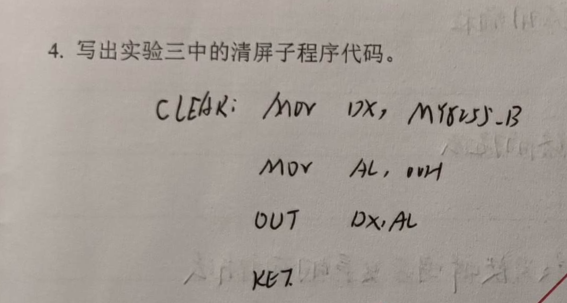 4. 写出实验三中的清屏子程序代码。
CLEAR: MOV DX, MY8255_B
MOV AL, 00H
OUT DX, AL
RET